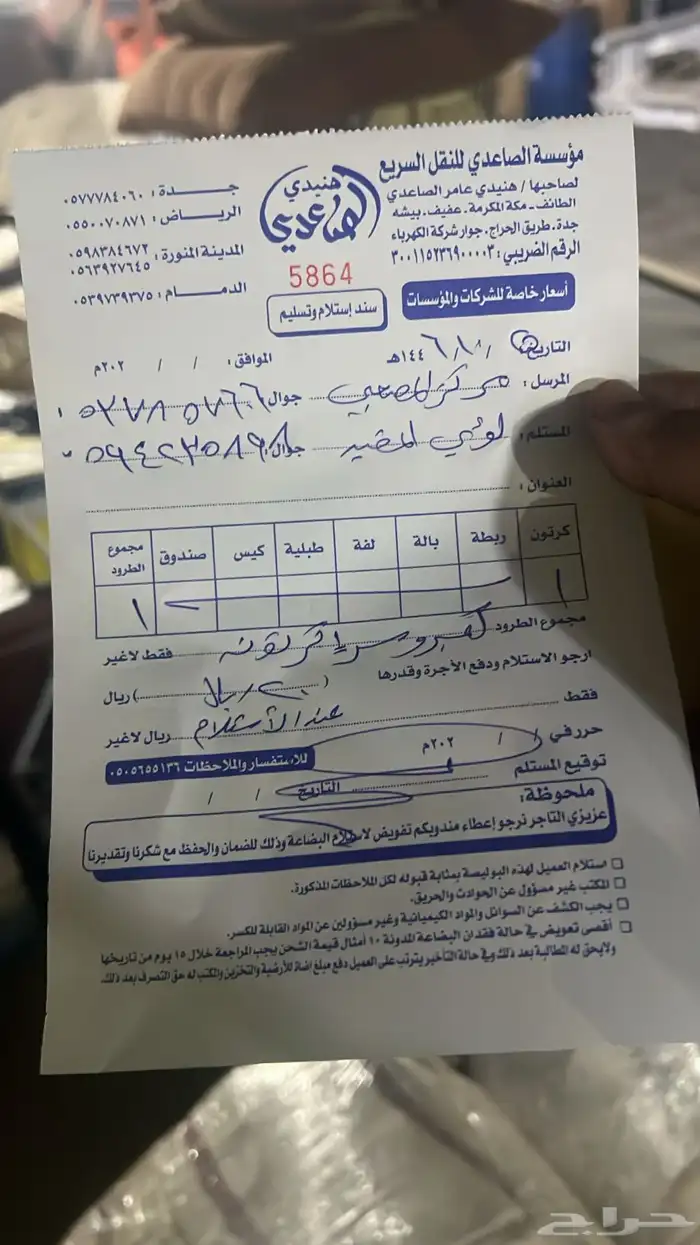 مؤسسة الصاعدي للنقل السريع
لصاحبها / هنيدي عامر الصاعدي
الطائف - مكة المكرمة - عفيف - بيشه
جدة - طريق الحراج - جوار شركة الكهرباء
الرقم الضريبي : ٣٠٠١١٥٢٣٦٩٠٠٠٠٣
أسعار خاصة للشركات والمؤسسات
هنيدي
الصاعدي
5864
سند إستلام وتسليم
جــدة : ٠٥٧٧٧٨٤٠٦٠
الرياض : ٠٥٥٠٠٧٠٨٧١
المدينة المنورة : ٠٥٩٨٣٨٤٦٧٢
٠٥٦٣٩٢٧٦٤٥
الدمـــام : ٠٥٣٩٧٣٩٣٧٥
التاريخ : / / ١٤٤٦هـ الموافق : / / ٢٠٢م
المرسل : مركز جوال
المستلم : لؤي جوال
العنوان :
كرتون ربطة بالة لفة طبلية كيس صندوق مجموع الطرود
١ ١
مجموع الطرود كرتونه فقط لاغير
ارجو الاستلام ودفع الأجرة وقدرها ( ٢٠ ريال ) ريال
فقط عند الاستلام ريال لاغير
حرر في / / ٢٠٢م
للاستفسار والملاحظات ٠٥٠٥٦٥٥١٣٦
توقيع المستلم التاريخ / /
ملحوظة :
عزيزي التاجر نرجو إعطاء مندوبكم تفويض لاستلام البضاعة وذلك للضمان والحفظ مع شكرنا وتقديرنا
استلام العميل لهذه البوليصة بمثابة قبوله لكل الملاحظات المذكورة.
المكتب غير مسؤول عن الحوادث والحريق.
يجب الكشف عن السوائل والمواد الكيميائية وغير مسؤولين عن المواد القابلة للكسر.
أقصى تعويض في حالة فقدان البضاعة المدونة ١٠ أمثال قيمة الشحن يجب المراجعة خلال ١٥ يوم من تاريخها
ولايحق له المطالبة بعد ذلك وفي حالة التأخير يترتب على العميل دفع مبلغ اضافة للأرضية والتخزين والمكتب له حق التصرف بعد ذلك.
حراج